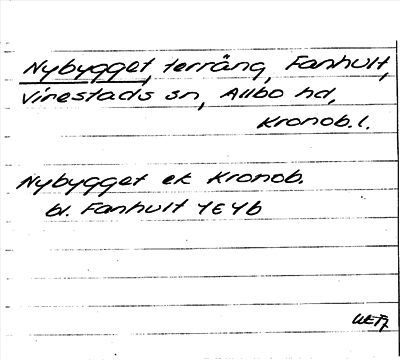 Nybygget, terräng, Fanhult,
Virestads sn, Allbo hd,
Kronob. l.
Nybygget ek Kronob.
bl. Fanhult 4E4b